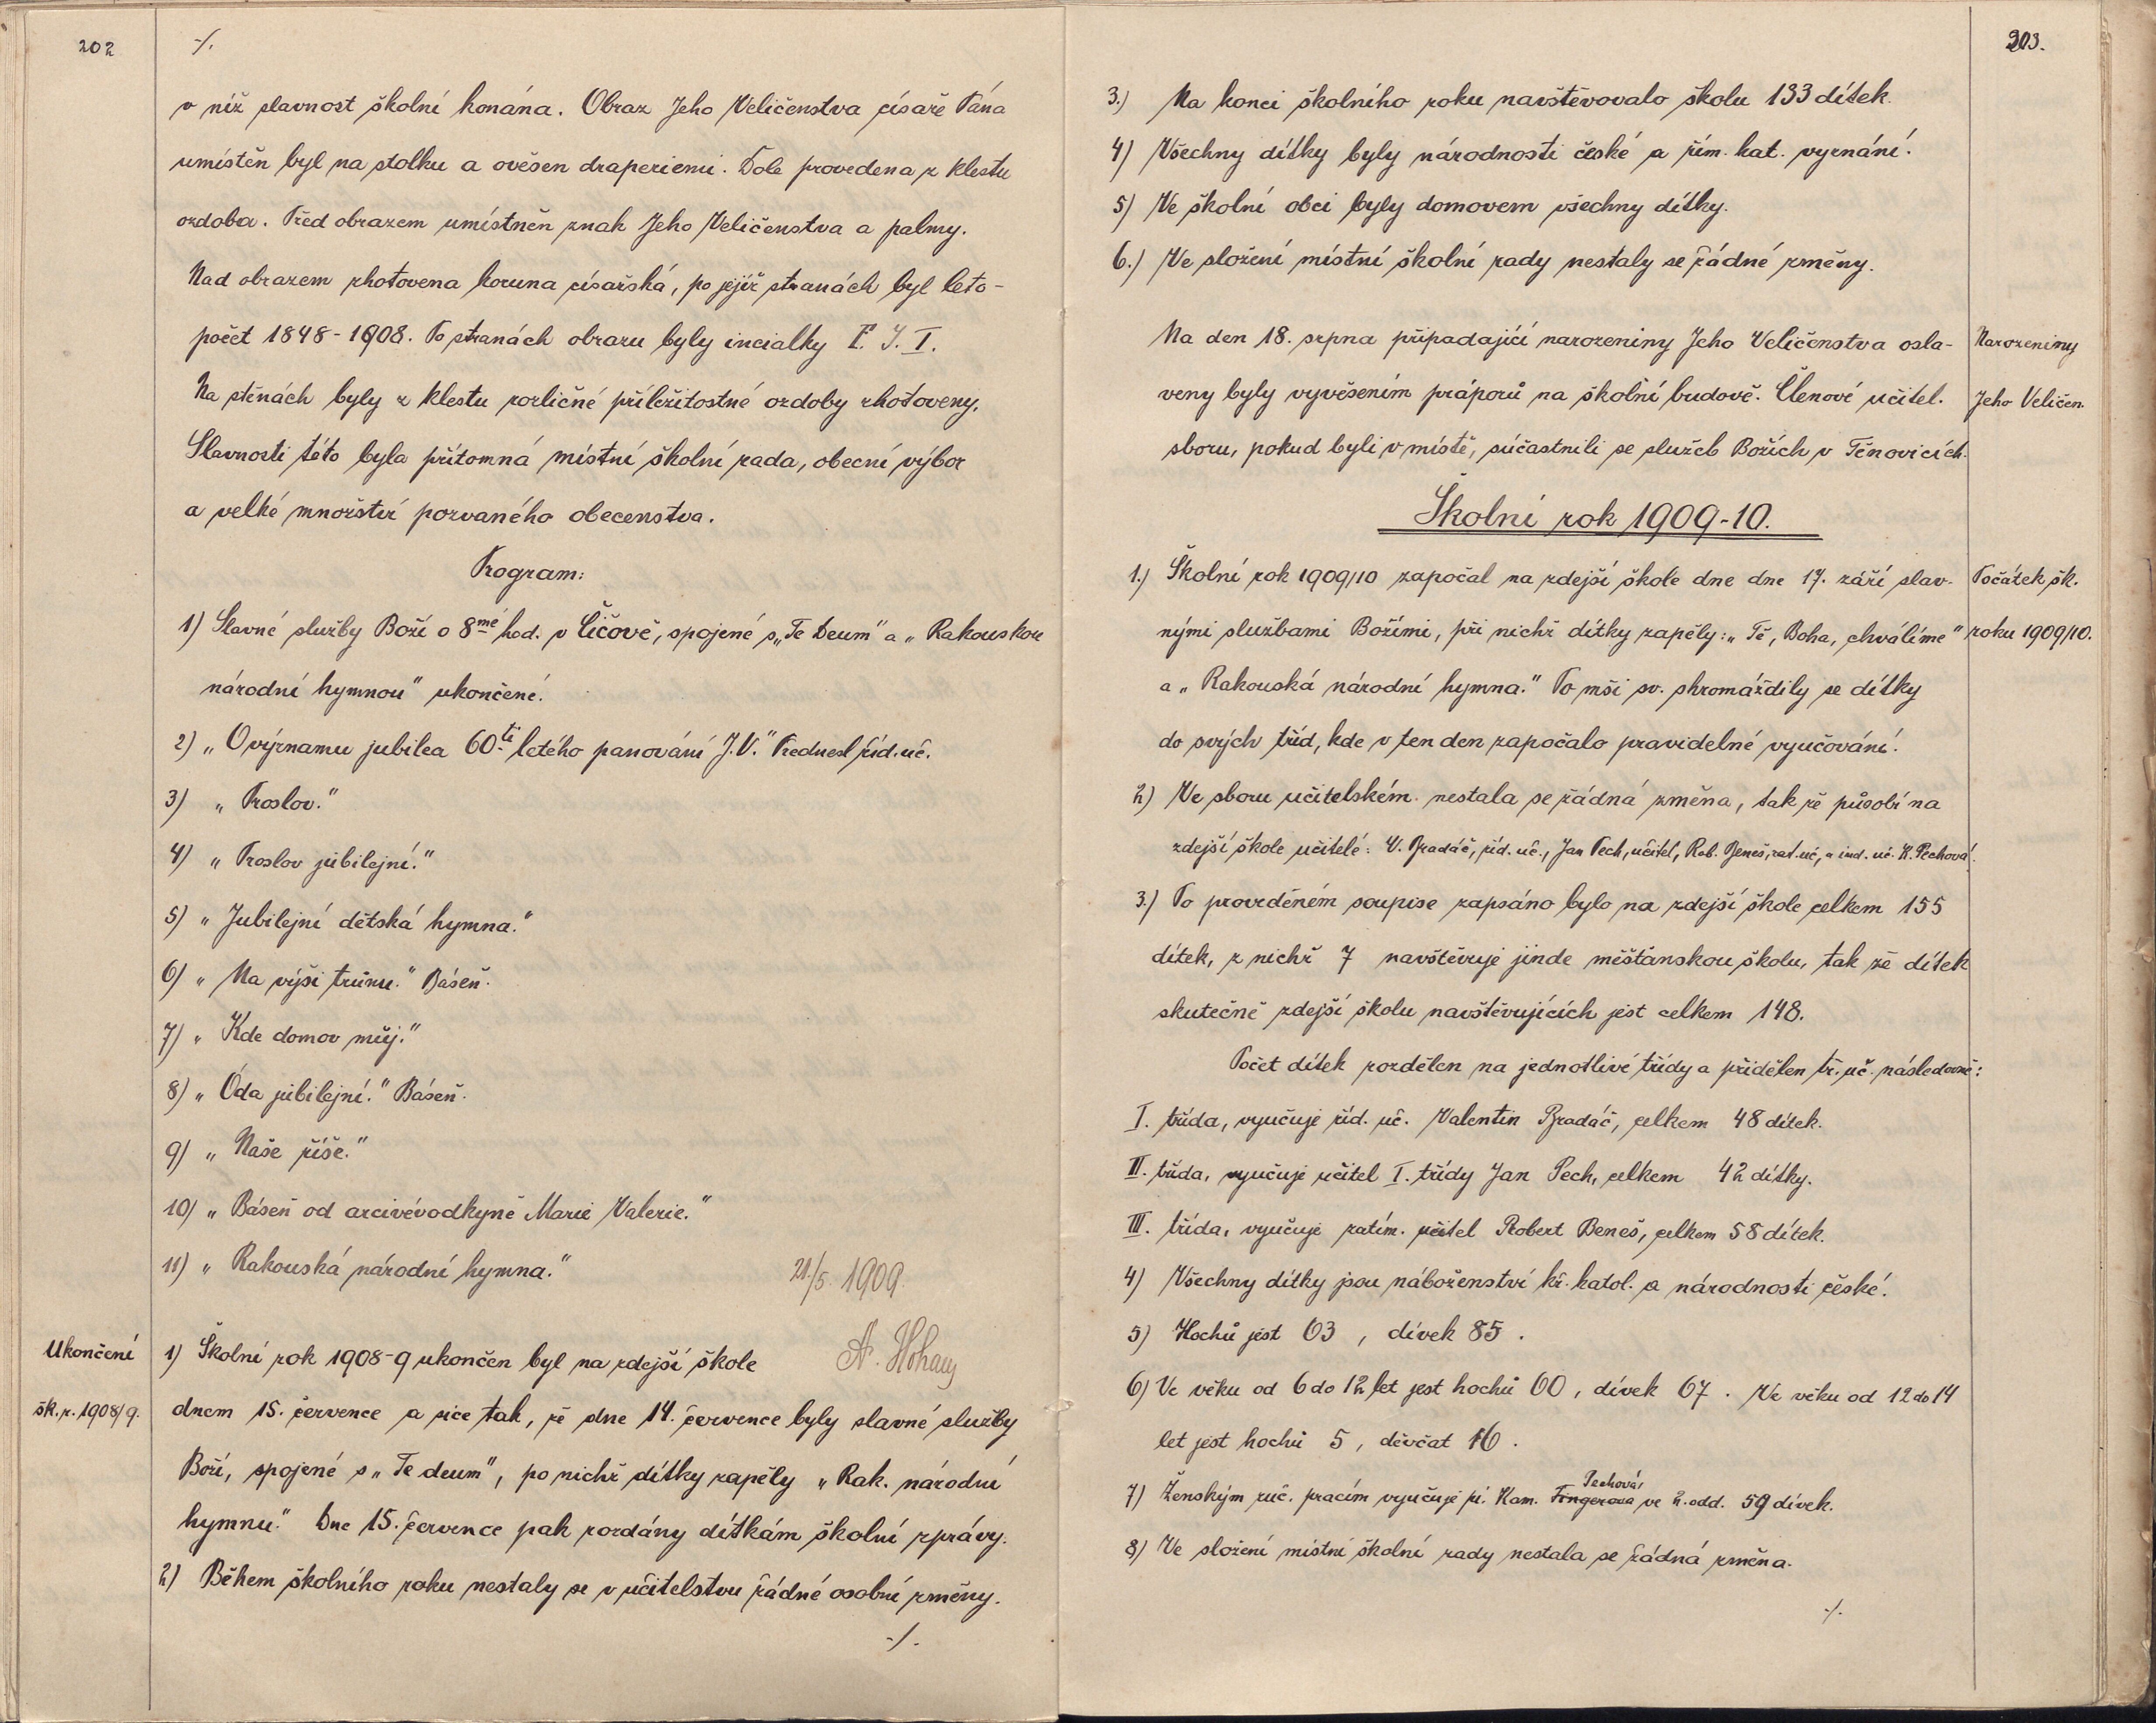 202
-/.
v níž slavnost školní konána. Obraz Jeho Veličenstva císaře Pána
umístěn byl na stolku a ověšen draperiemi. Dole provedena z klestu
ozdoba. Před obrazem umístněn znak Jeho Veličenstva a palmy.
Nad obrazem zhotovena koruna císařská, po jejíž stranách byl leto-
počet 1848-1908. Po stranách obrazu byly incialky F. J. I.
Na stěnách byly z klestu rozličné příležitostné ozdoby zhotoveny.
Slavnosti této byla přítomná místní školní rada, obecní výbor
a velké množství pozvaného obecenstva.
Program:
1) Slavné služby Boží o 8mé hod. v Číčově, spojené s „Te Deum" a „Rakouskou
národní hymnou" ukončené.
2) „O významu jubilea 60ti letého panování J.V." Přednesl říd. uč.
3) „Proslov."
4) „Proslov jubilejní."
5) „Jubilejní dětská hymna."
6) „Na výši trůnu." Báseň.
7) „Kde domov můj."
8) „Óda jubilejní." Báseň.
9) „Naše říše."
10) „Báseň od arcivévodkyně Marie Valerie."
11) „Rakouská národní hymna."
21./5. 1909.
Ukončení
šk. r. 1908/9.
1) Školní rok 1908-9 ukončen byl na zdejší škole
dnem 15. července a sice tak, že dne 14. července byly slavné služby
Boží, spojené s „Te deum", po nichž dítky zapěly „Rak. národní
hymnu." Dne 15. července pak rozdány dítkám školní zprávy.
2) Během školního roku nestaly se v učitelstvu žádné osobní změny.
-/.
203.
3.) Na konci školního roku navštěvovalo školu 133 dítek.
4) Všechny dítky byly národnosti české a řím. kat. vyznání.
5) Ve školní obci byly domovem všechny dítky.
6.) Ve složení místní školní rady nestaly se žádné změny.
Na den 18. srpna připadající narozeniny Jeho Veličenstva osla-
veny byly vyvěšením práporů na školní budově. Členové učitel.
sboru, pokud byli v místě, súčastnili se služeb Božích v Těnovicích.
Narozeniny
Jeho Veličen.
Školní rok 1909-10.
1.) Školní rok 1909/10 započal na zdejší škole dne dne 17. září slav-
nými službami Božími, při nichž dítky zapěly: „Tě, Boha, chválíme"
a „Rakouská národní hymna." Po mši sv. shromáždily se dítky
do svých tříd, kde v ten den započalo pravidelné vyučování.
Počátek šk.
roku 1909/10.
2) Ve sboru učitelském nestala se žádná změna, tak že působí na
zdejší škole učitelé: V. Bradáč, říd. uč., Jan Pech, učitel, Rob. Beneš, zat. uč., a ind. uč. K. Pechová.
3.) Po provedeném soupise zapsáno bylo na zdejší škole celkem 155
dítek, z nichž 7 navštěvuje jinde měšťanskou školu, tak že dítek
skutečně zdejší školu navštěvujících jest celkem 148.
Počet dítek rozdělen na jednotlivé třídy a přidělen tř. uč. následovně:
I. třída, vyučuje říd. uč. Valentin Bradáč, celkem 48 dítek.
II. třída, vyučuje učitel I. třídy Jan Pech, celkem 42 dítky.
III. třída, vyučuje zatím. učitel Robert Beneš, celkem 58 dítek.
4) Všechny dítky jsou náboženství kř. katol. a národnosti české.
5) Hochů jest 63, dívek 85.
6) Ve věku od 6 do 12 let jest hochů 60, dívek 67. Ve věku od 12 do 14
let jest hochů 5, děvčat 16.
Pechová,
7) Ženským ruč. pracím vyučuje pí. Kam. Fingerova ve 2. odd. 59 dívek.
8) Ve složení místní školní rady nestala se žádná změna.
-/.